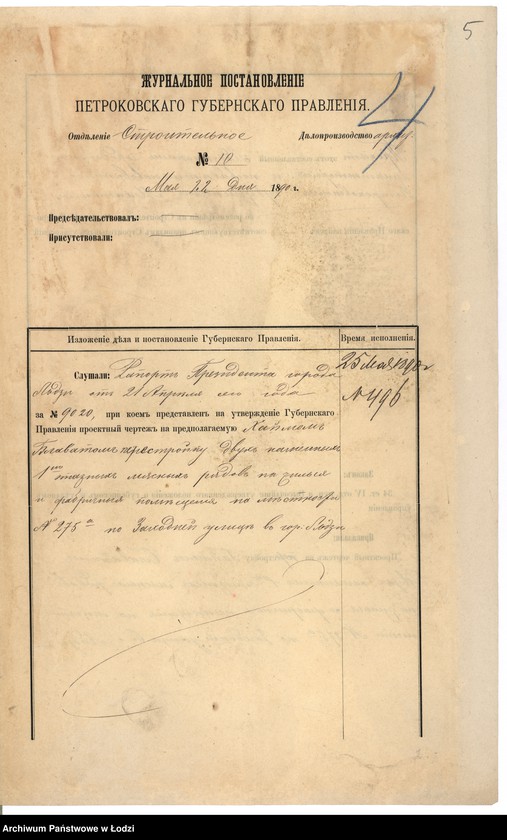 5
4
ЖУРНАЛЬНОЕ ПОСТАНОВЛЕНІЕ
ПЕТРОКОВСКАГО ГУБЕРНСКАГО ПРАВЛЕНІЯ.
Отдѣленіе Строительное Дѣлопроизводство
№ 10
Мая 22 дня 1890 г.
Предсѣдательствовалъ:
Присутствовали:
Изложеніе дѣла и постановленіе Губернскаго Правленія. Время исполненія.
25 Мая 1890 г
№ 496
Слушали: Рапортъ Президента города
Лодзи отъ 20 Апрѣля сего года
за № 9020, при коемъ представленъ на утвержденіе Губернскаго
Правленія проектный чертежъ на предполагаемую
перестройку двухъ
1 этажныхъ рядовъ на жилыя
и фабричныя помѣщенія въ
№ 275 а по Заходней улицѣ въ гор. Лодзи
Archiwum Państwowe w Łodzi